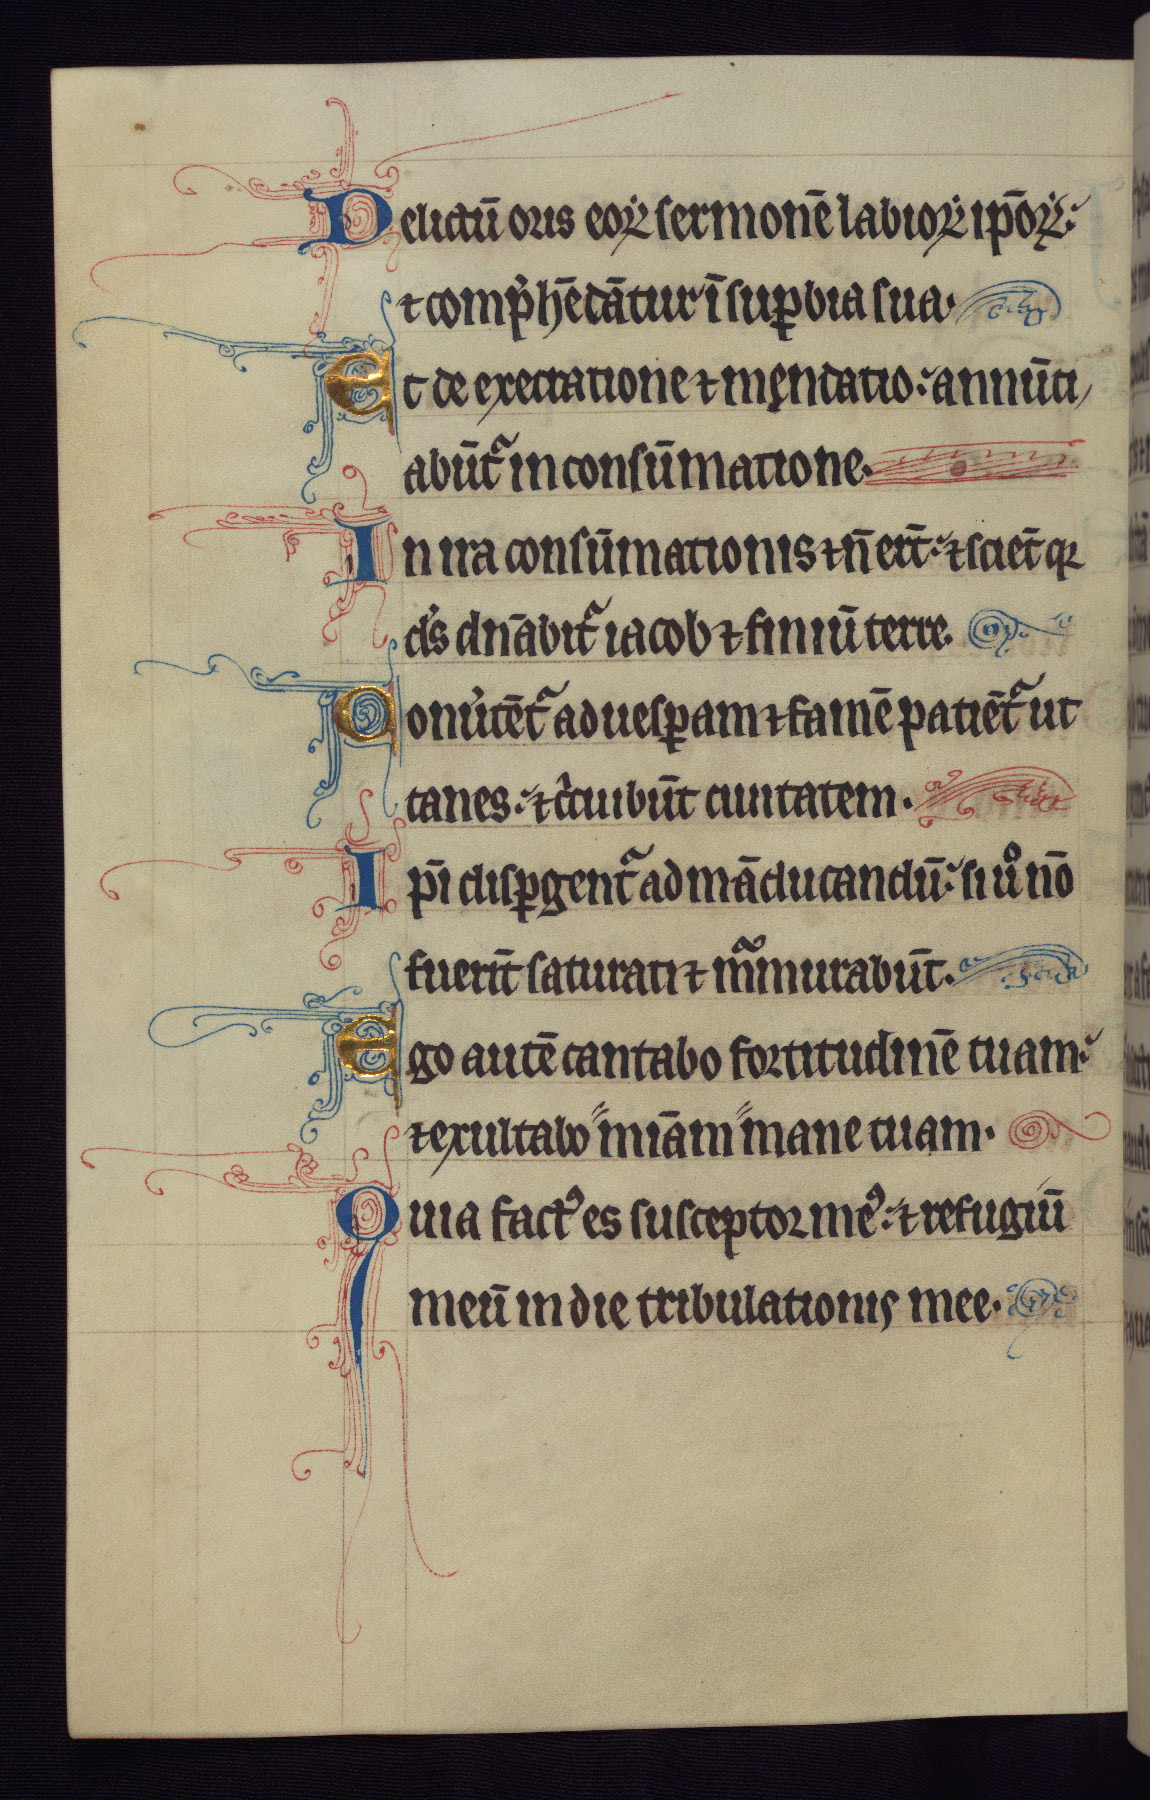 Delictū oris eoꝝ sermonē labioꝝ ip̄oꝝ:
⁊ comp̄hēdātur ī suꝑbia sua.
Et de execratione ⁊ mendatio: annūti
abūt᷑ in consūmatione.
In ira consūmationis ⁊ n̄ erūt: ⁊ sciēt qꝛ
ds̄ dn̄abit᷑ iacob ⁊ finiū terre.
Conu̾tēt᷑ ad uesꝑam ⁊ famē patiēt᷑ ut
canes: ⁊ c̾cuibūt ciuitatem.
Ip̄i disꝑgent᷑ ad māducandū: si ů nō
fuerīt saturati ⁊ mᷓmurabūt.
Ego autē cantabo fortitudinē tuam:
⁊ exultabo ″miām ″mane tuam.
Quia factꝰ es susceptor meꝰ: ⁊ refugiū
meū in die tribulationis mee.